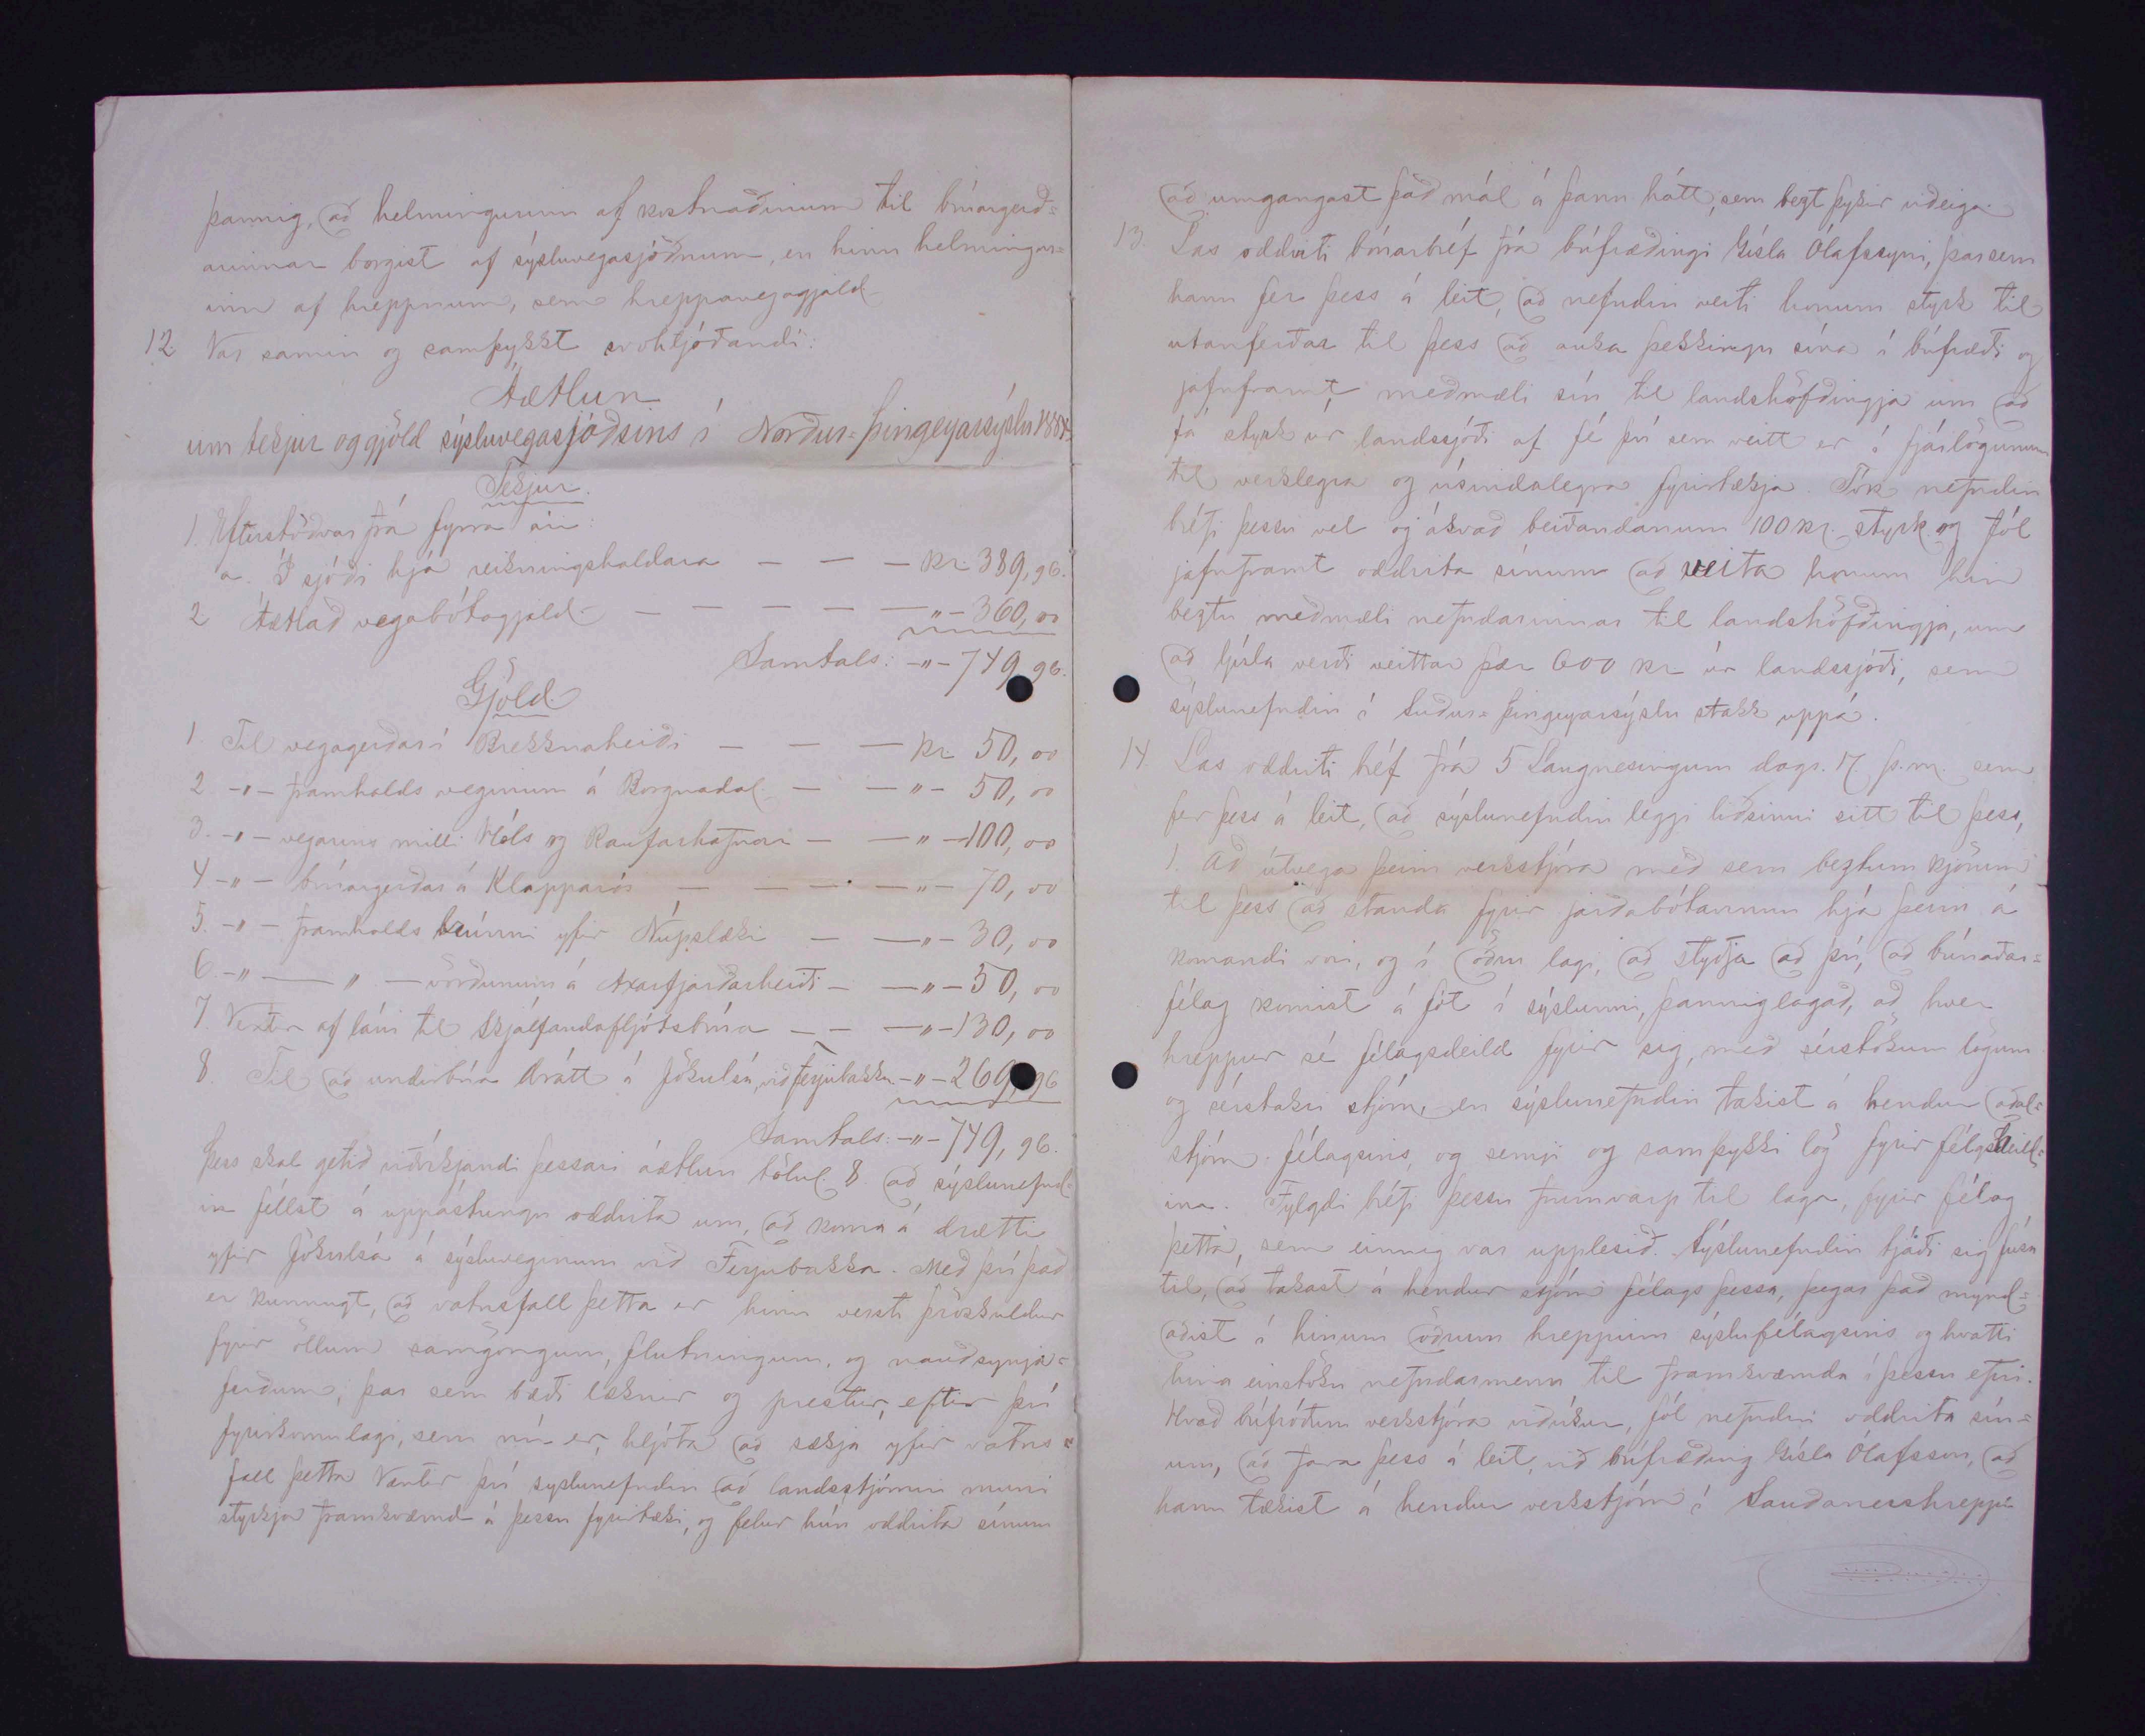 þannig, að helmingurinn af kostnaðinum til brúargerð=
arinnar borgist af sýsluvegasjóðnum, en hinn helmingur=
inn af hreppnum, sem hreppavegagjald
12. Var samin og samþykkt svohljóðandi:
Áætlun
um tekjur og gjöld sýsluvegasjóðsins í Norður=Þingeyarsýslu 1884.
Tekjur.
1. Eptirstöðvar frá fyrra ári:
a. Í sjóði hjá reikningshaldara — — — kr. 389,96.
2 Áætlað vegabótagjald — — — — — — „ — 360,00
Samtals: -„- 749,96.
Gjöld
1. Til vegagerðar í Brekknaheiði — — — kr 50,00
2 -„- framhalds veginum á Borgnadal — — „ - 50,00
3. -„- vegarins milli Hóls og Raufarhafnar — — „ - 100,00
4 -„- brúargerðar á Klapparós — — — — „ - 70,00
5. -„- framhalds brúnni yfir Núpslæki — — „ - 30,00
6. -„- — „ — vörðunum á Axarfjarðarheiði — — „ - 50,00
7. Vextir af láni til Skjálfandafljótsbrúa — — — „ - 130,00
8. Til að undirbúa drátt á Jökulsá, við Ferjubakka -„- 269,96
Samtals: -„- 749,96.
Þess skal getið viðvíkjandi þessari áætlun tölul. 8. að sýslunefnd=
in féllst á uppástungu oddvita um, að koma á drætti
yfir Jökulsá á sýsluveginum við Ferjubakka. Með því það
er kunnugt, að vatnsfall þetta er hinn versti þröskuldur
fyrir öllum samgöngum, flutningum, og nauðsynja=
ferðum, þar sem bæði læknir og prestur, eftir því
fyrirkomulagi, sem nú er, hljóta að sækja yfir vatns=
fall þetta Væntir því syslunefndin að landsstjórnin muni
styrkja framkvæmd á þessu fyrirtæki, og felur hún oddvita sínum
að umgangast það mál á þann hátt, sem bezt þykir viðeiga.
13. Las oddviti bónarbréf frá búfræðingi Gísla Ólafssyni, þar sem
hann fer þess á leit, að nefndin veiti honum styrk til
utanferðar til þess að auka þekkingu sína í búfræði og
jafnframt meðmæli sín til landshöfðingja um að
fá styrk úr landssjóði af fé því sem veitt er í fjárlögunum
til verklegra og vísindalegra fyrirtækja. Tók nefndin
bréfi þessu vel og ákvað beiðandanum 100 kr. styrk og fól
jafnframt oddvita sínum að veita honum hin
beztu meðmæli nefndarinnar til landshöfðingja, um
að Gísla verði veittar þær 600 kr úr landssjóði, sem
sýslunefndin í Suður=Þingeyarsýslu stakk uppá.
14. Las oddviti bréf frá 5 Langnesingum dags. 17 þ.m. sem
fer þess á leit, að sýslunefndin leggi liðsinni sitt til þess,
1. Að útvega þeim verkstjóra með sem beztum kjörum
til þess að standa fyrir jarðabótavinnu hjá þeim á
komandi vori, og í öðru lagi, að styðja að því, að búnaðar=
félag komist á fót í sýslunni, þanniglagað, að hver
hreppur sé félagsdeild fyrir sig, með sérstökum lögum
og sérstakri stjórn, en sýslunefndin takist á hendur aðal=
stjórn félagsins, og semji og samþykki lög fyrir félagsdeild=
ina. Fylgdi bréfi þessu frumvarp til laga, fyrir félag
þetta, sem einnig var upplesið. Sýslunefndin tjáði sig fúsa
til, að takast á hendur stjórn félags þessa, þegar það mynd=
aðist í hinum öðrum hreppum sýslufélagsins og hvatti
hina einstöku nefndarmenn til framkvæmda í þessu efni.
Hvað búfróðum verkstjóra viðvíkur, fól nefndin oddvita sín=
um, að fara þess á leit, við búfræðing Gísla Ólafsson, að
hann tækist á hendur verkstjórn í Sauðaneshreppi